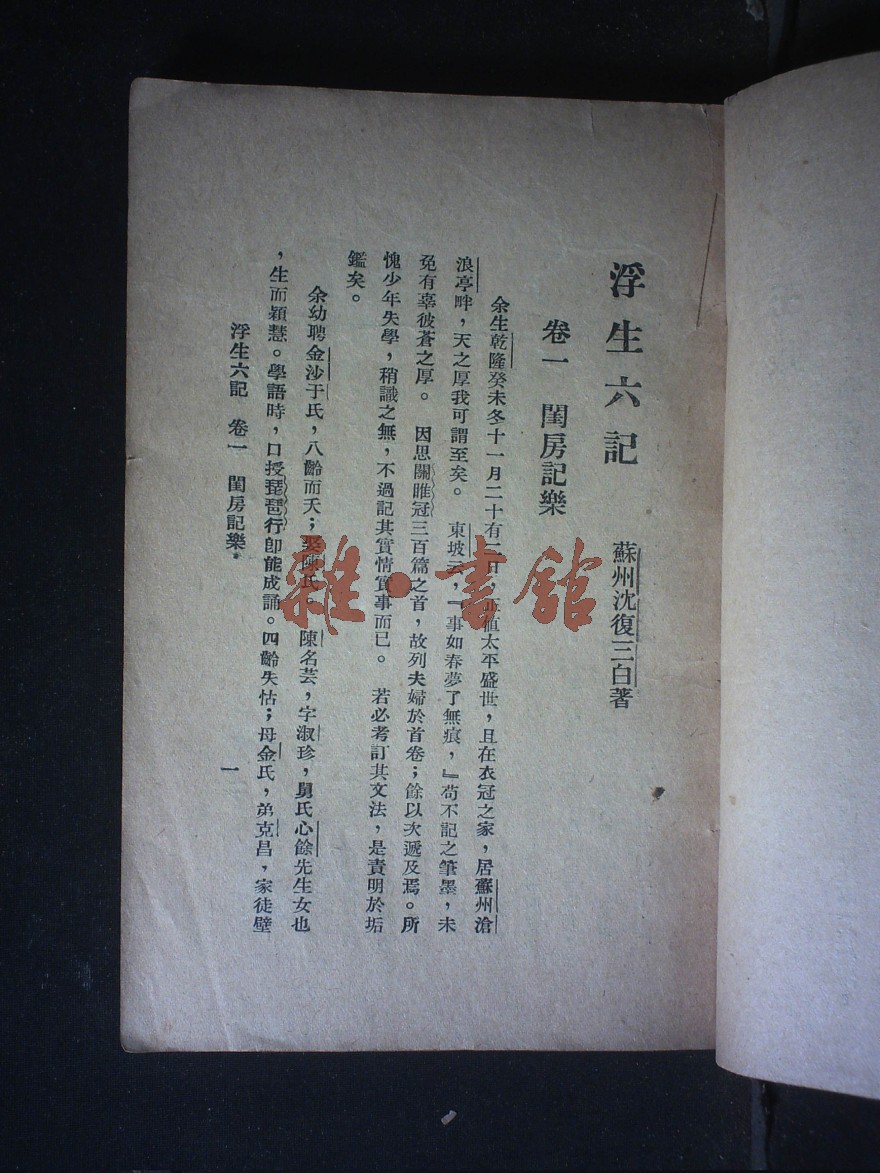 浮生六記
蘇州沈復三白著
卷一 閨房記樂
余生乾隆癸未冬十一月二十有二日，正值太平盛世，且在衣冠之家，居蘇州滄
浪亭畔，天之厚我可謂至矣。東坡云，『事如春夢了無痕，』苟不記之筆墨，未
免有辜彼蒼之厚。因思關雎冠三百篇之首，故列夫婦於首卷；餘以次遞及焉。所
愧少年失學，稍識之無，不過記其實情實事而已。若必考訂其文法，是責明於垢
鑑矣。
余幼聘金沙于氏，八齡而夭；娶陳氏。陳名芸，字淑珍，舅氏心餘先生女也
，生而穎慧。學語時，口授琵琶行卽能成誦。四齡失怙；母金氏，弟克昌，家徒壁
浮生六記 卷一 閨房記樂
一
雜·書館